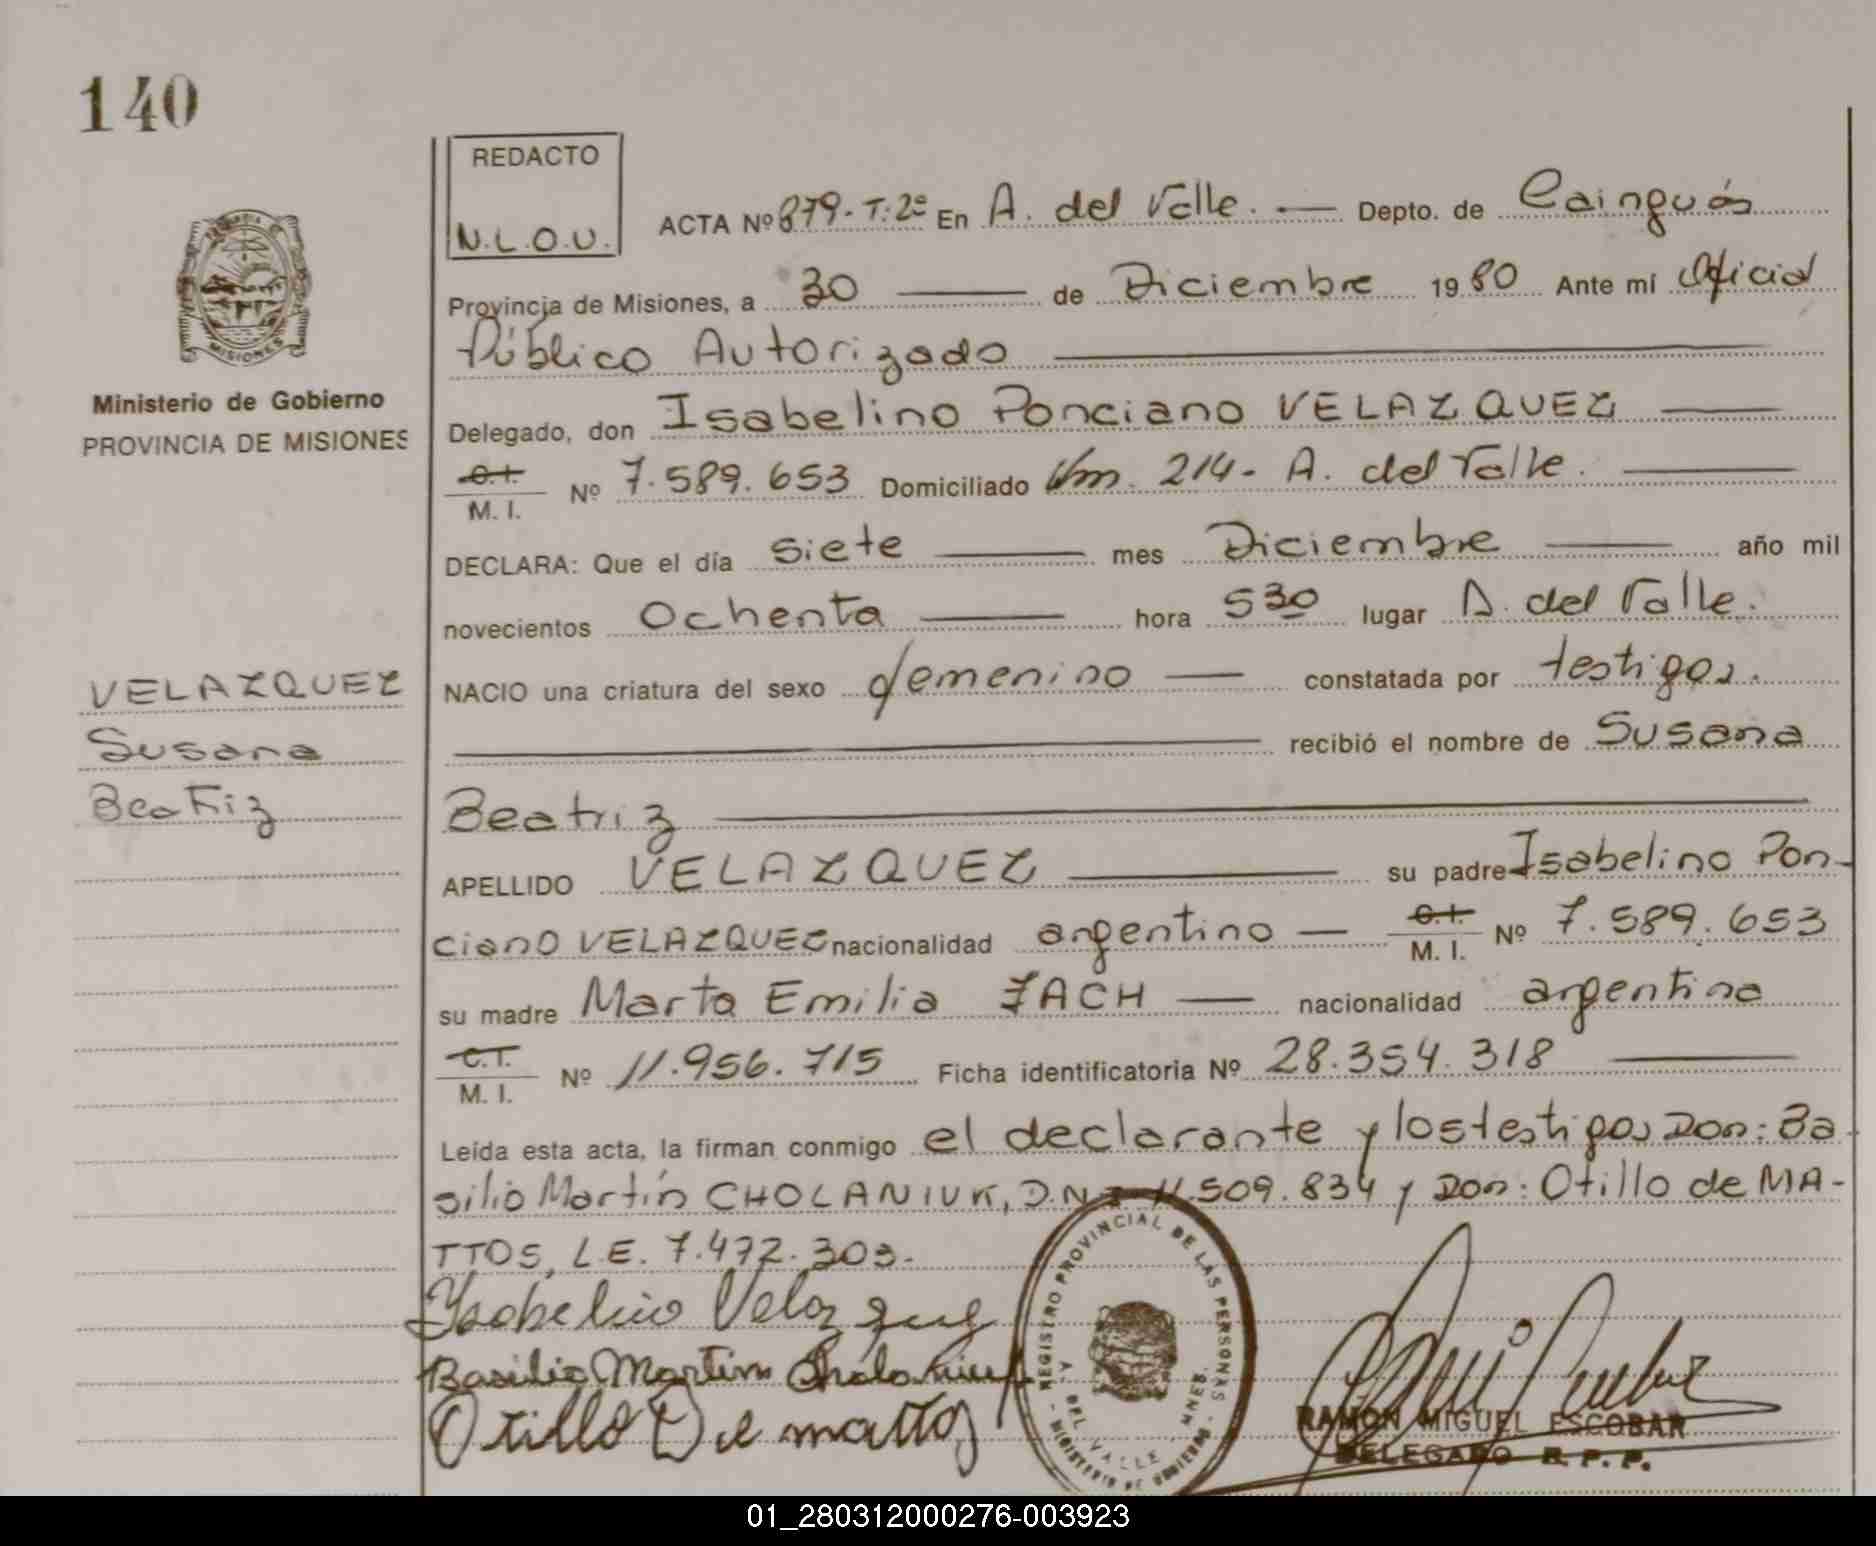 140
REDACTO
N.L.O.U.
ACTA Nº 879-T:2º En A. del Valle. — Depto. de Cainguás
Provincia de Misiones, a 30 — de Diciembre 1980 Ante mí Oficial
Público Autorizado
Ministerio de Gobierno
PROVINCIA DE MISIONES
Delegado, don Isabelino Ponciano VELAZQUEZ —
C.I. M. I. Nº 7.589.653 Domiciliado Km. 214- A. del Valle. —
DECLARA: Que el día siete — mes Diciembre — año mil
novecientos Ochenta — hora 530 lugar A. del Valle.
VELAZQUEZ
Susana
Beatriz
NACIO una criatura del sexo femenino — constatada por testigos.
— recibió el nombre de Susana
Beatriz —
APELLIDO VELAZQUEZ — su padre Isabelino Pon-
ciano VELAZQUEZ nacionalidad argentino — C.I. M. I. Nº 7.589.653
su madre Marta Emilia ZACH — nacionalidad argentina
C.I. M. I. Nº 11.956.715 Ficha identificatoria Nº 28.354.318 —
Leída esta acta, la firman conmigo el declarante y los testigos Don: Ba-
silio Martín CHOLANIUK, D.N.I 11.509.834 y Don: Otillo de MA-
TTOS, L.E. 7.472.303.-
Ysabelino Velazquez
Basilio Martin Cholaniuk
Otillo De mattos
REGISTRO PROVINCIAL DE LAS PERSONAS
A. DEL VALLE - MNES.
- MINISTERIO DE GOBIERNO -
RAMON MIGUEL ESCOBAR
DELEGADO R.P.P.
MISIONES
01_280312000276-003923